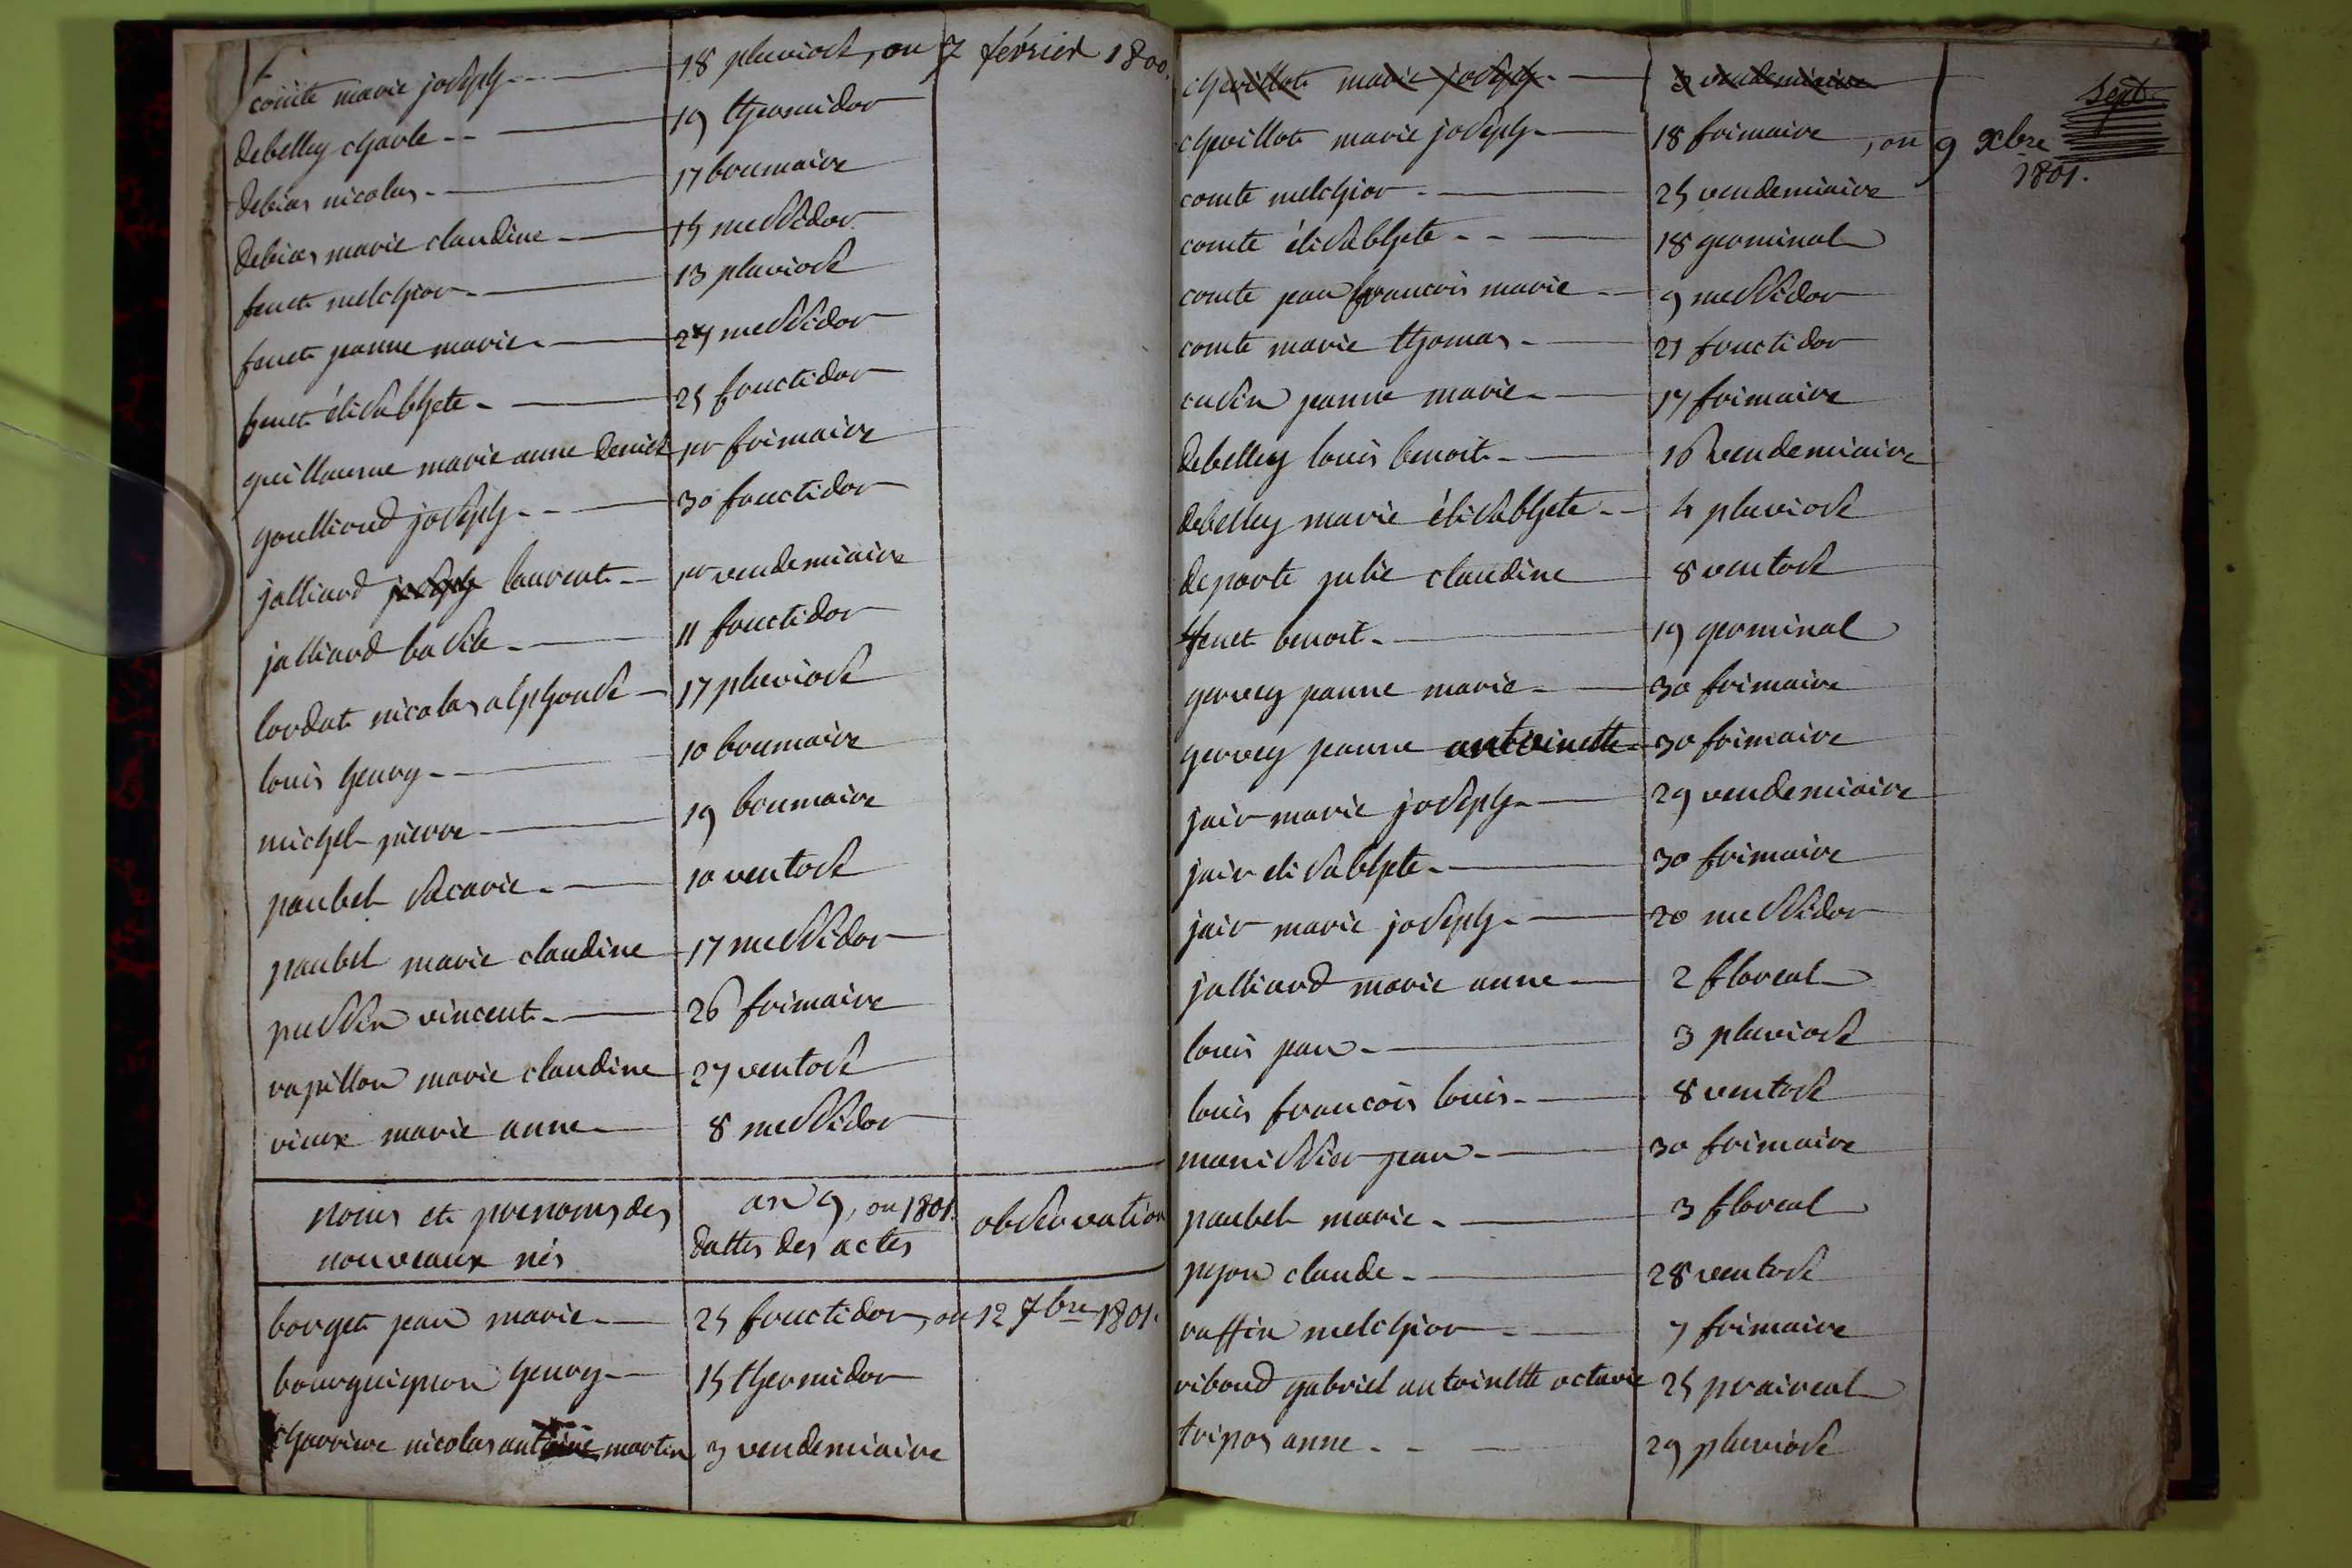 comte marie joseph 18 pluviose, ou 7 février 1800.
debelley charle 19 thermidor
debias nicolas 17 brumaire
debias marie claudine 15 messidor
fenet melchior 13 pluviose
fenet jeanne marie 27 messidor
fenet élisabhete 25 fructidor
guillaume marie anne denise pr frimaire
goullioud joseph 30 fructidor
jalliard joseph laurent pr vendemiaire
jalliard basile 11 fructidor
lordat nicolas alphonse 17 pluviose
louis henry 10 brumaire
michel pierre 19 brumaire
paubel sacarie 10 ventose
paubel marie claudine 17 messidor
pussin vincent 26 frimaire
rapillon marie claudine 27 ventose
vieux marie anne 8 messidor
noms et prenoms des an 9, ou 1801. observation
nouveaux nés dattes des actes
borget jean marie 25 fructidor, ou 12 7bre 1801.
bourguignon henry 15 thermidor
charriere nicolas antoine martin 3 vendemiaire
chevillot marie joseph 3 vendemiaire
Sept.
chevillot marie joseph 18 frimaire, ou 9 xbre
1801.
comte melchior 25 vendemiaire
comte élisabhete 18 germinal
comte jean francois marie 9 messidor
comte marie thomas 21 fructidor
cusin jeanne marie 17 frimaire
debelley louis benoit 16 vendemiaire
debelley marie élisabhete 4 pluviose
deporte julie claudine 8 ventose
fenet benoit 19 germinal
gervey jeanne marie 30 frimaire
gervey jeanne antoinette 30 frimaire
jair marie joseph 29 vendemiaire
jair elisabhete 30 frimaire
jair marie joseph 20 messidor
jalliard marie anne 2 floreal
louis jean 3 pluviose
louis francois louis 8 ventose
manissier jean 30 frimaire
paubel marie 3 floreal
pijon claude 28 ventose
ruffin melchior 7 frimaire
riboud gabriel antoinette octavie 25 praireal
tripoz anne 29 pluviose